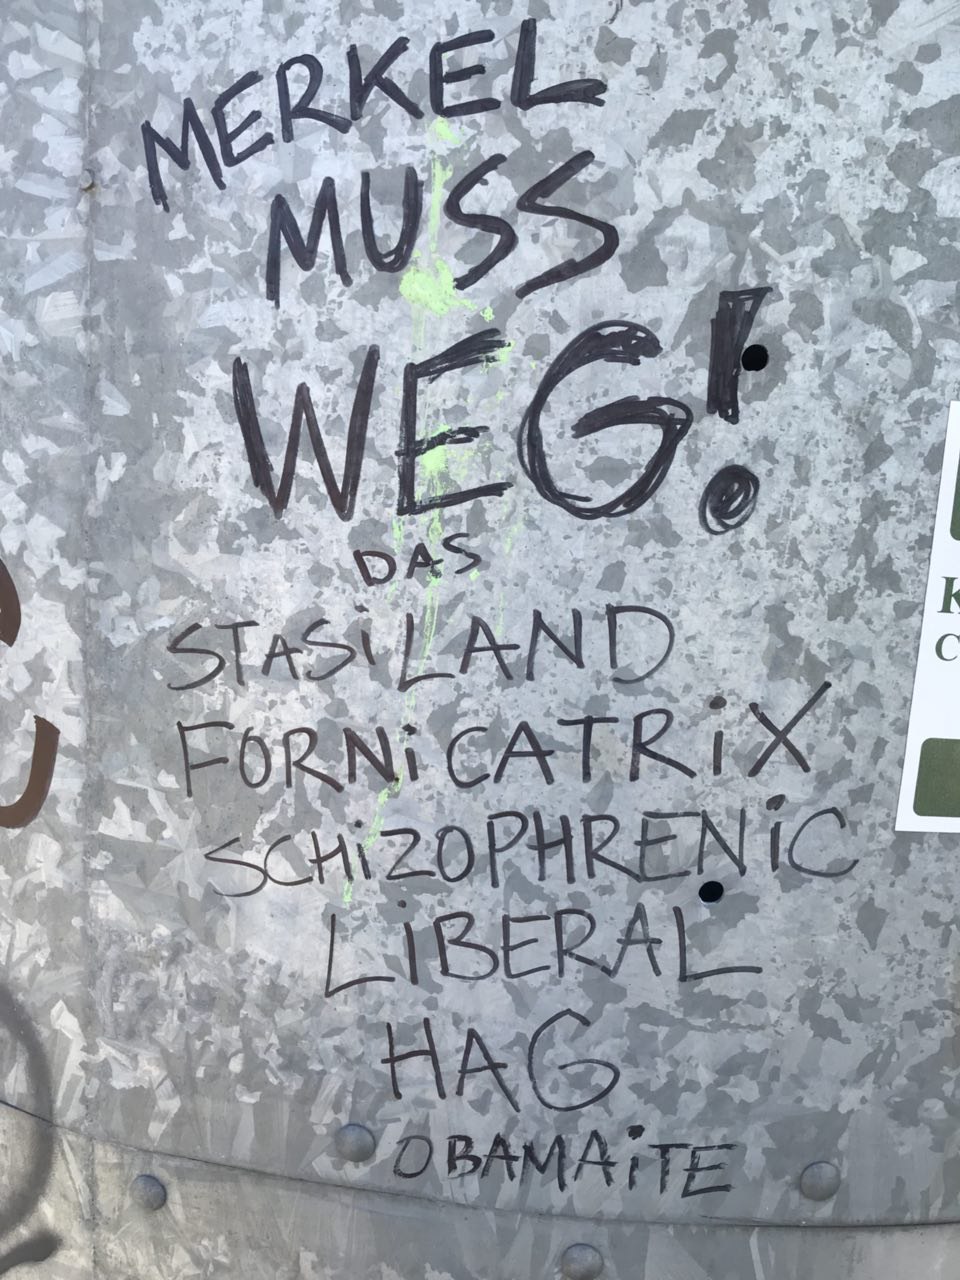 MERKEL
MUSS
WEG!
DAS
STASiLAND
FORNiCATRiX
SCHiZOPHRENiC
LiBERAL
HAG
OBAMAiTE
K
C